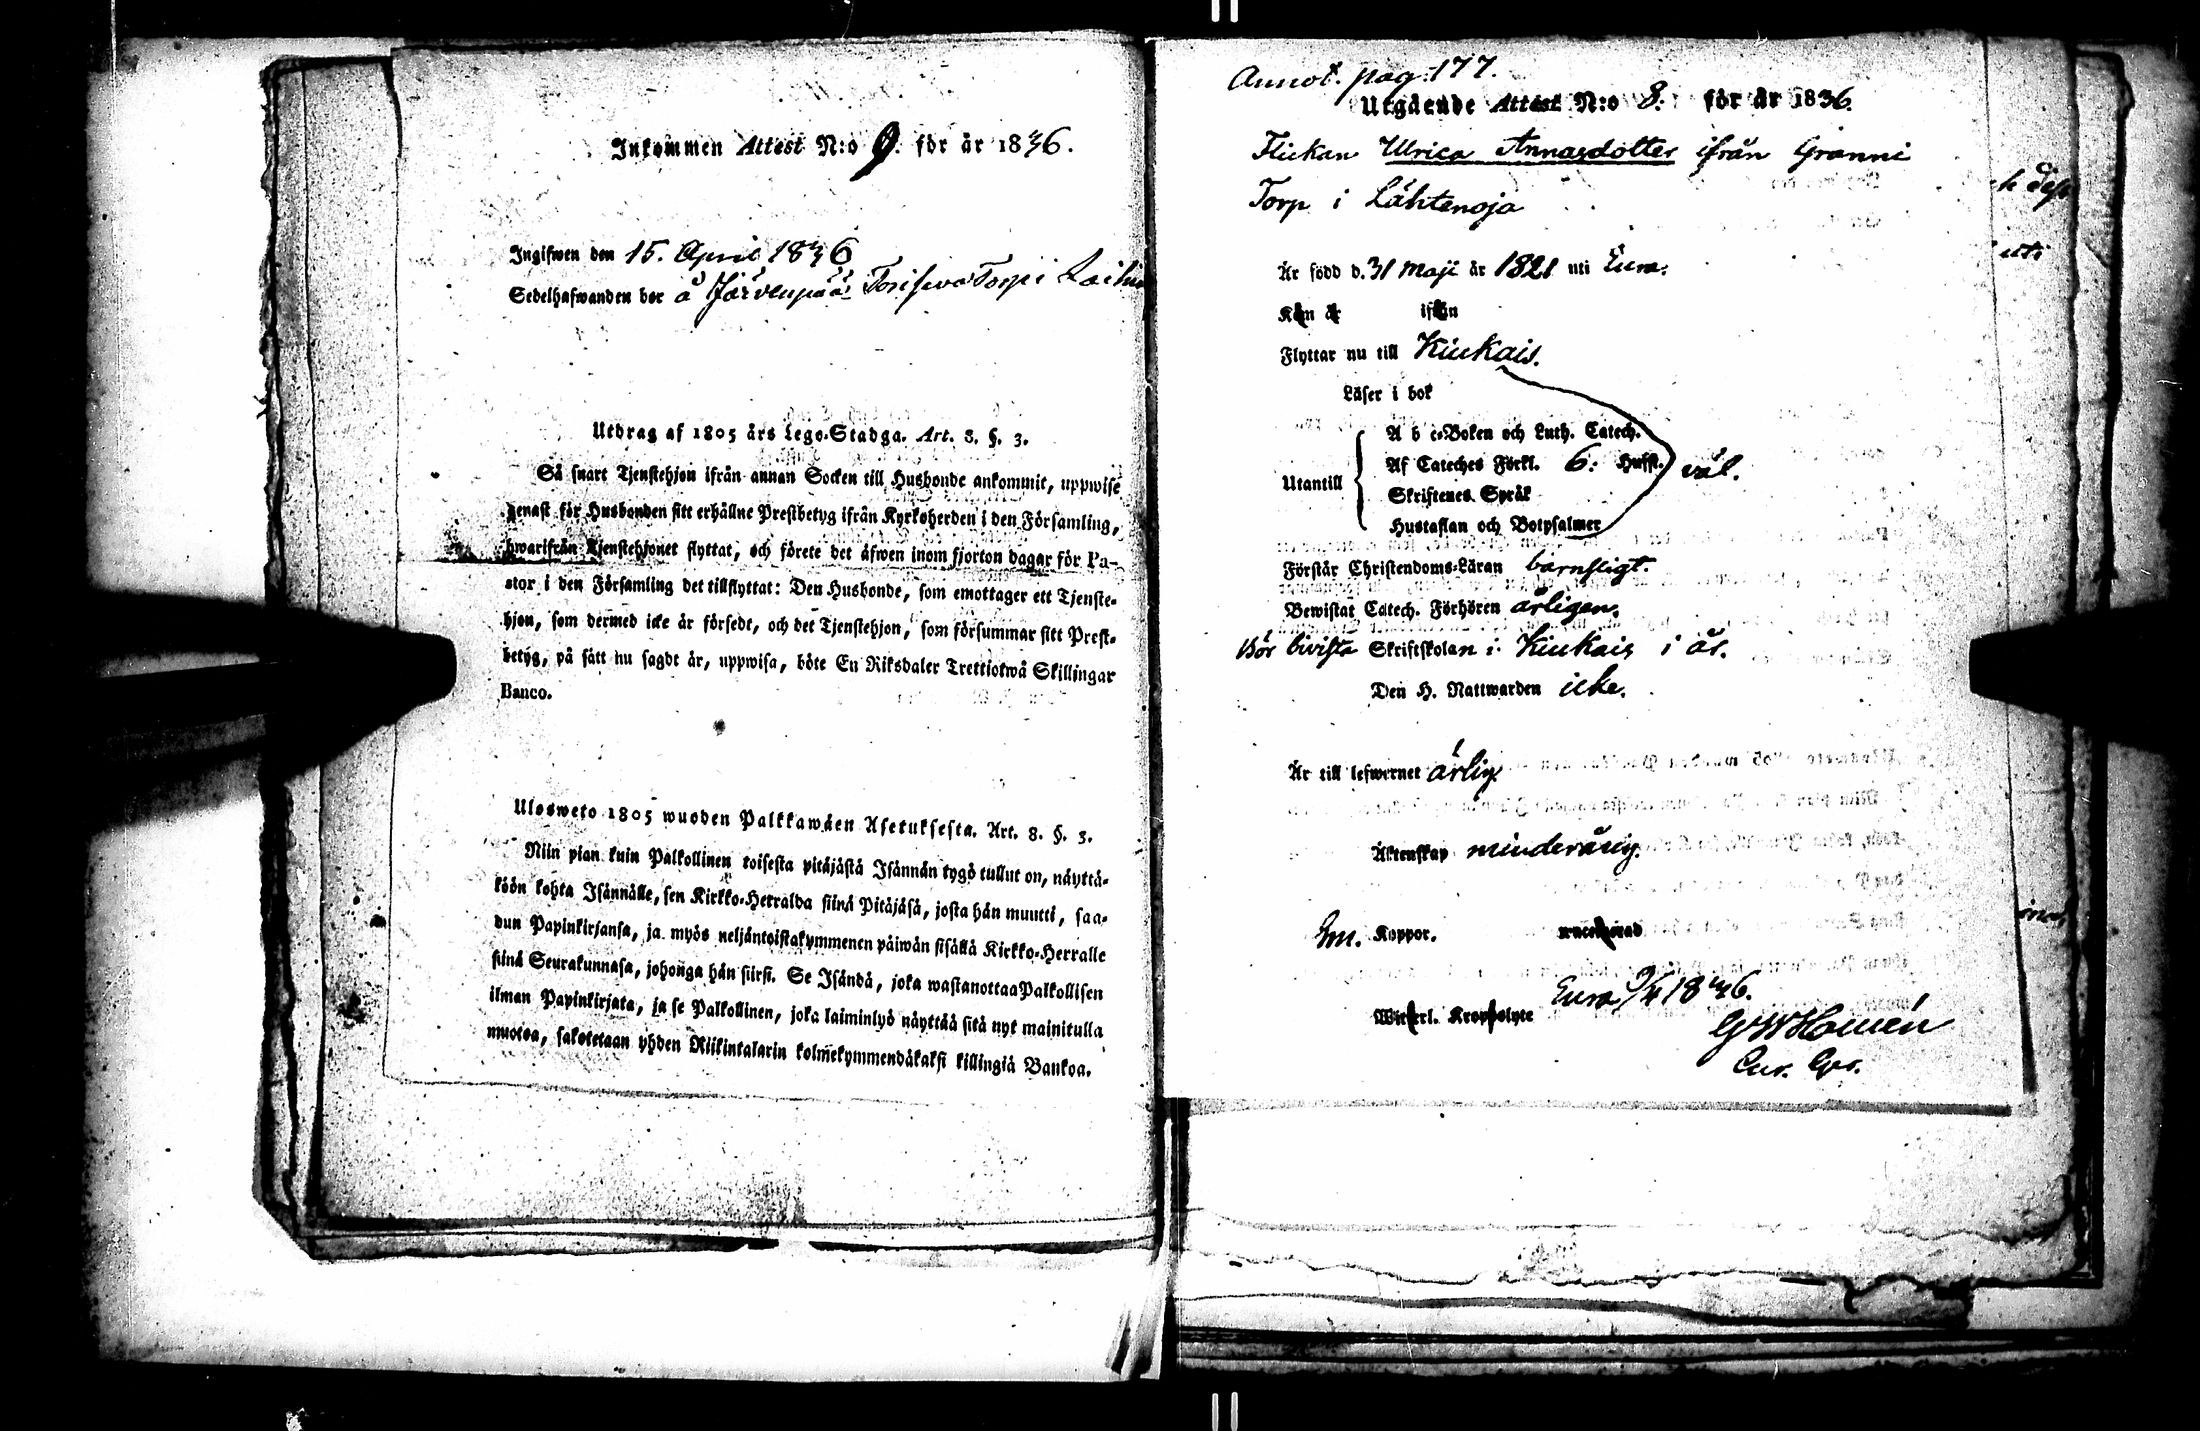 Inkommen Attest N:o 9. för år 1836.
Ingifwen den 15. April 1836
Sedelhafwanden bor å Järvenpää Torisewa Torp i
Utdrag af 1805 års Lego-Stadga. Art. 8. §. 3.
Så snart Tjenstehjon ifrån annan Socken till Husbonde ankommit, uppwise
genast för Husbonden sitt erhållne Prestbetyg ifrån Kyrkoherden i den Församling,
hwarifrån Tjenstehjonet flyttat, och förete det äfwen inom fjorton dagar för Pa-
stor i den Församling det tillflyttat: Den Husbonde, som emottager ett Tjenste-
hjon, som dermed icke är försedt, och det Tjenstehjon, som försummar sitt Prest-
betyg, på sätt nu sagdt är, uppwisa, böte En Riksdaler Trettiotwå Skillingar
Banco.
Ulosweto 1805 wuoden Palkkawäen Asetuksesta. Art. 8. §. 3.
Niin pian kuin Palkollinen toisesta pitäjästä Isännän tygö tullut on, näyttä-
köön kohta Isännälle, sen Kirkko-Herralda siinä Pitäjäsä, josta hän muutti, saa-
dun Papinkirjansa, ja myös neljäntoistakymmenen päiwän sisällä Kirkko-Herralle
siinä Seurakunnasa, johonga hän siirsi. Se Isändä, joka wastanottaa Palkollisen
ilman Papinkirjata, ja se Palkollinen, joka laiminlyö näyttää sitä nyt mainitulla
muotoa, sakotetaan yhden Riikintalarin kolmekymmendäkaksi killingiä Bankoa.
Annot. pag. 177.
Utgående Attest N:o 8. för år 1836.
Flickan Ulrica Annasdotter ifrån Granni
Torp i Lähtenoja
Är född d. 31 Maji år 1821 uti Eura.
Kön är ifrån
Flyttar nu till Kiukais.
Läser i bok
A b c-Boken och Luth. Catech.
Af Cateches Förkl. 6: Hufst. väl.
Utantill
Skriftenes Språk
Hustaflan och Botpsalmer
Förstår Christendoms-Läran barnsligt.
Bewistat Catech. Förhören årligen.
Bör bivista Skriftskolan i Kiukais i år.
Den H. Nattwarden icke.
Är till lefwernet ärlig.
Äktenskap minderårig.
Koppor. vaccinerad
Witterl. Kropsslyte
Eura 9/4 1836.
GWHomén